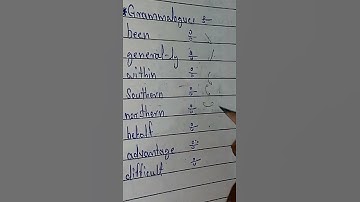 *Grammalogues :-
been
general-ly
within
Southern
northern
behalf
advantage
difficult